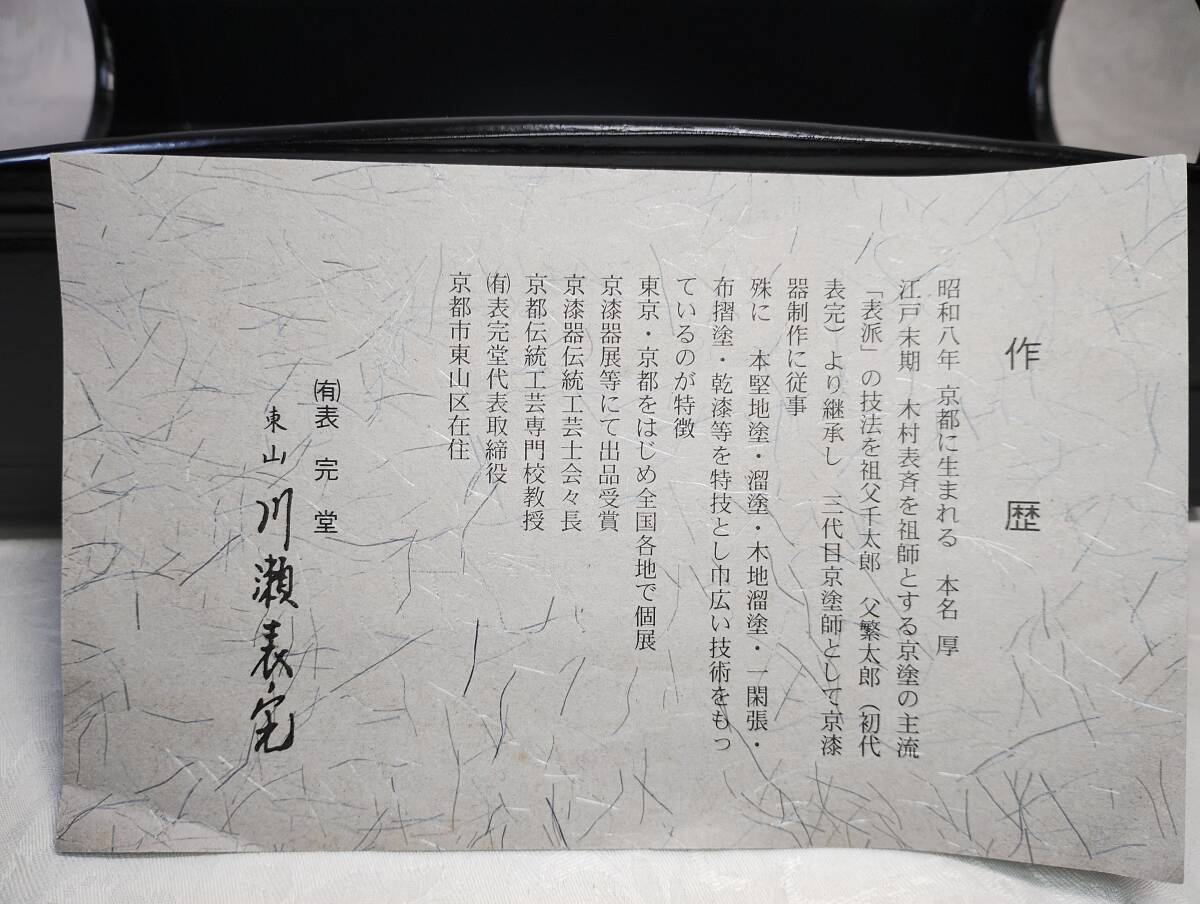 作歴
昭和八年 京都に生まれる 本名 厚
江戸末期 木村表斉を祖師とする京塗の主流
「表派」の技法を祖父千太郎 父繁太郎(初代
表完)より継承し 三代目京塗師として京漆
器制作に従事
殊に 本堅地塗・溜塗・木地溜塗・一閑張・
布摺塗・乾漆等を特技とし巾広い技術をもっ
ているのが特徴
東京・京都をはじめ全国各地で個展
京漆器展等にて出品受賞
京漆器伝統工芸士会々長
京都伝統工芸専門校教授
㈲表完堂代表取締役
京都市東山区在住
㈲表完堂
東山 川瀬表完